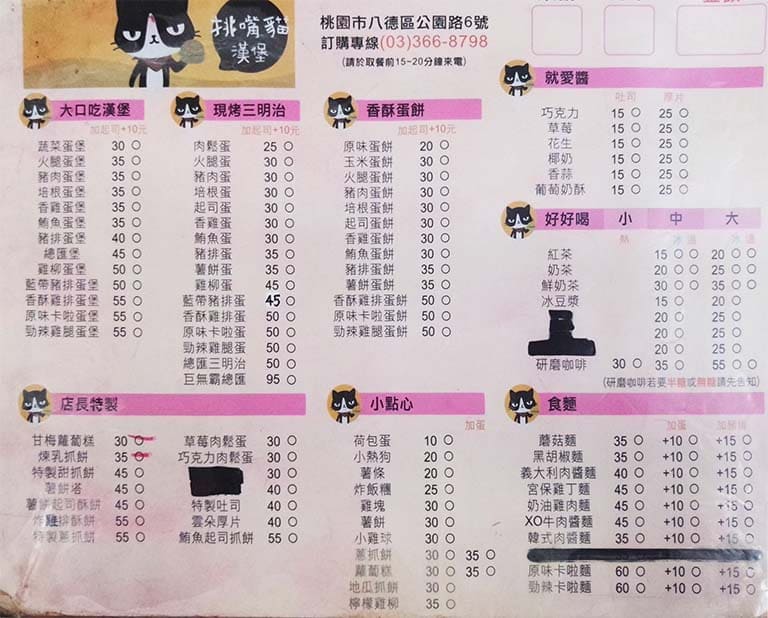 挑嘴貓
漢堡
桃園市八德區公園路6號
訂購專線(03)366-8798
(請於取餐前15~20分鐘來電)
大口吃漢堡
加起司+10元
蔬菜蛋堡 30
火腿蛋堡 35
豬肉蛋堡 35
培根蛋堡 35
香雞蛋堡 35
鮪魚蛋堡 35
豬排蛋堡 40
總匯堡 45
雞柳蛋堡 50
藍帶豬排蛋堡 50
香酥雞排蛋堡 55
原味卡啦蛋堡 55
勁辣雞腿蛋堡 55
現烤三明治
加起司+10元
肉鬆蛋 25
火腿蛋 30
豬肉蛋 30
培根蛋 30
起司蛋 30
香雞蛋 30
鮪魚蛋 30
豬排蛋 35
薯餅蛋 35
雞柳蛋 45
藍帶豬排蛋 45
香酥雞排蛋 50
原味卡啦蛋 50
勁辣雞腿蛋 50
總匯三明治 50
巨無霸總匯 95
香酥蛋餅
加起司+10元
原味蛋餅 20
玉米蛋餅 30
火腿蛋餅 30
豬肉蛋餅 30
培根蛋餅 30
起司蛋餅 30
香雞蛋餅 30
鮪魚蛋餅 30
豬排蛋餅 35
薯餅蛋餅 35
香酥雞排蛋餅 50
原味卡啦蛋餅 50
勁辣雞腿蛋餅 50
就愛醬
吐司 厚片
巧克力 15 25
草莓 15 25
花生 15 25
椰奶 15 25
香蒜 15 25
葡萄奶酥 15 25
好好喝 小 中 大
熱 冰 溫 冰 溫
紅茶 15 20
奶茶 20 25
鮮奶茶 30 35
冰豆漿 15 20
20 25
20 25
研磨咖啡 30 35 55
(研磨咖啡若要半糖或無糖請先告知)
店長特製
甘梅蘿蔔糕 30
煉乳抓餅 35
特製甜抓餅 45
薯餅塔 45
薯餅起司酥餅 45
炸雞排酥餅 55
特製蔥抓餅 55
草莓肉鬆蛋 30
巧克力肉鬆蛋 30
30
40
特製吐司 40
雲朵厚片 40
鮪魚起司抓餅 55
小點心
加蛋
荷包蛋 10
小熱狗 20
薯條 20
炸飯糰 25
雞塊 30
薯餅 30
小雞球 30
蔥抓餅 30 35
蘿蔔糕 30 35
地瓜抓餅 30
檸檬雞柳 35
食麵
加蛋 加豬排
蘑菇麵 35 +10 +15
黑胡椒麵 35 +10 +15
義大利肉醬麵 40 +10 +15
宮保雞丁麵 45 +10 +15
奶油雞肉麵 45 +10 +15
XO牛肉醬麵 45 +10 +15
韓式肉醬麵 35 +10 +15
原味卡啦麵 60 +10 +15
勁辣卡啦麵 60 +10 +15